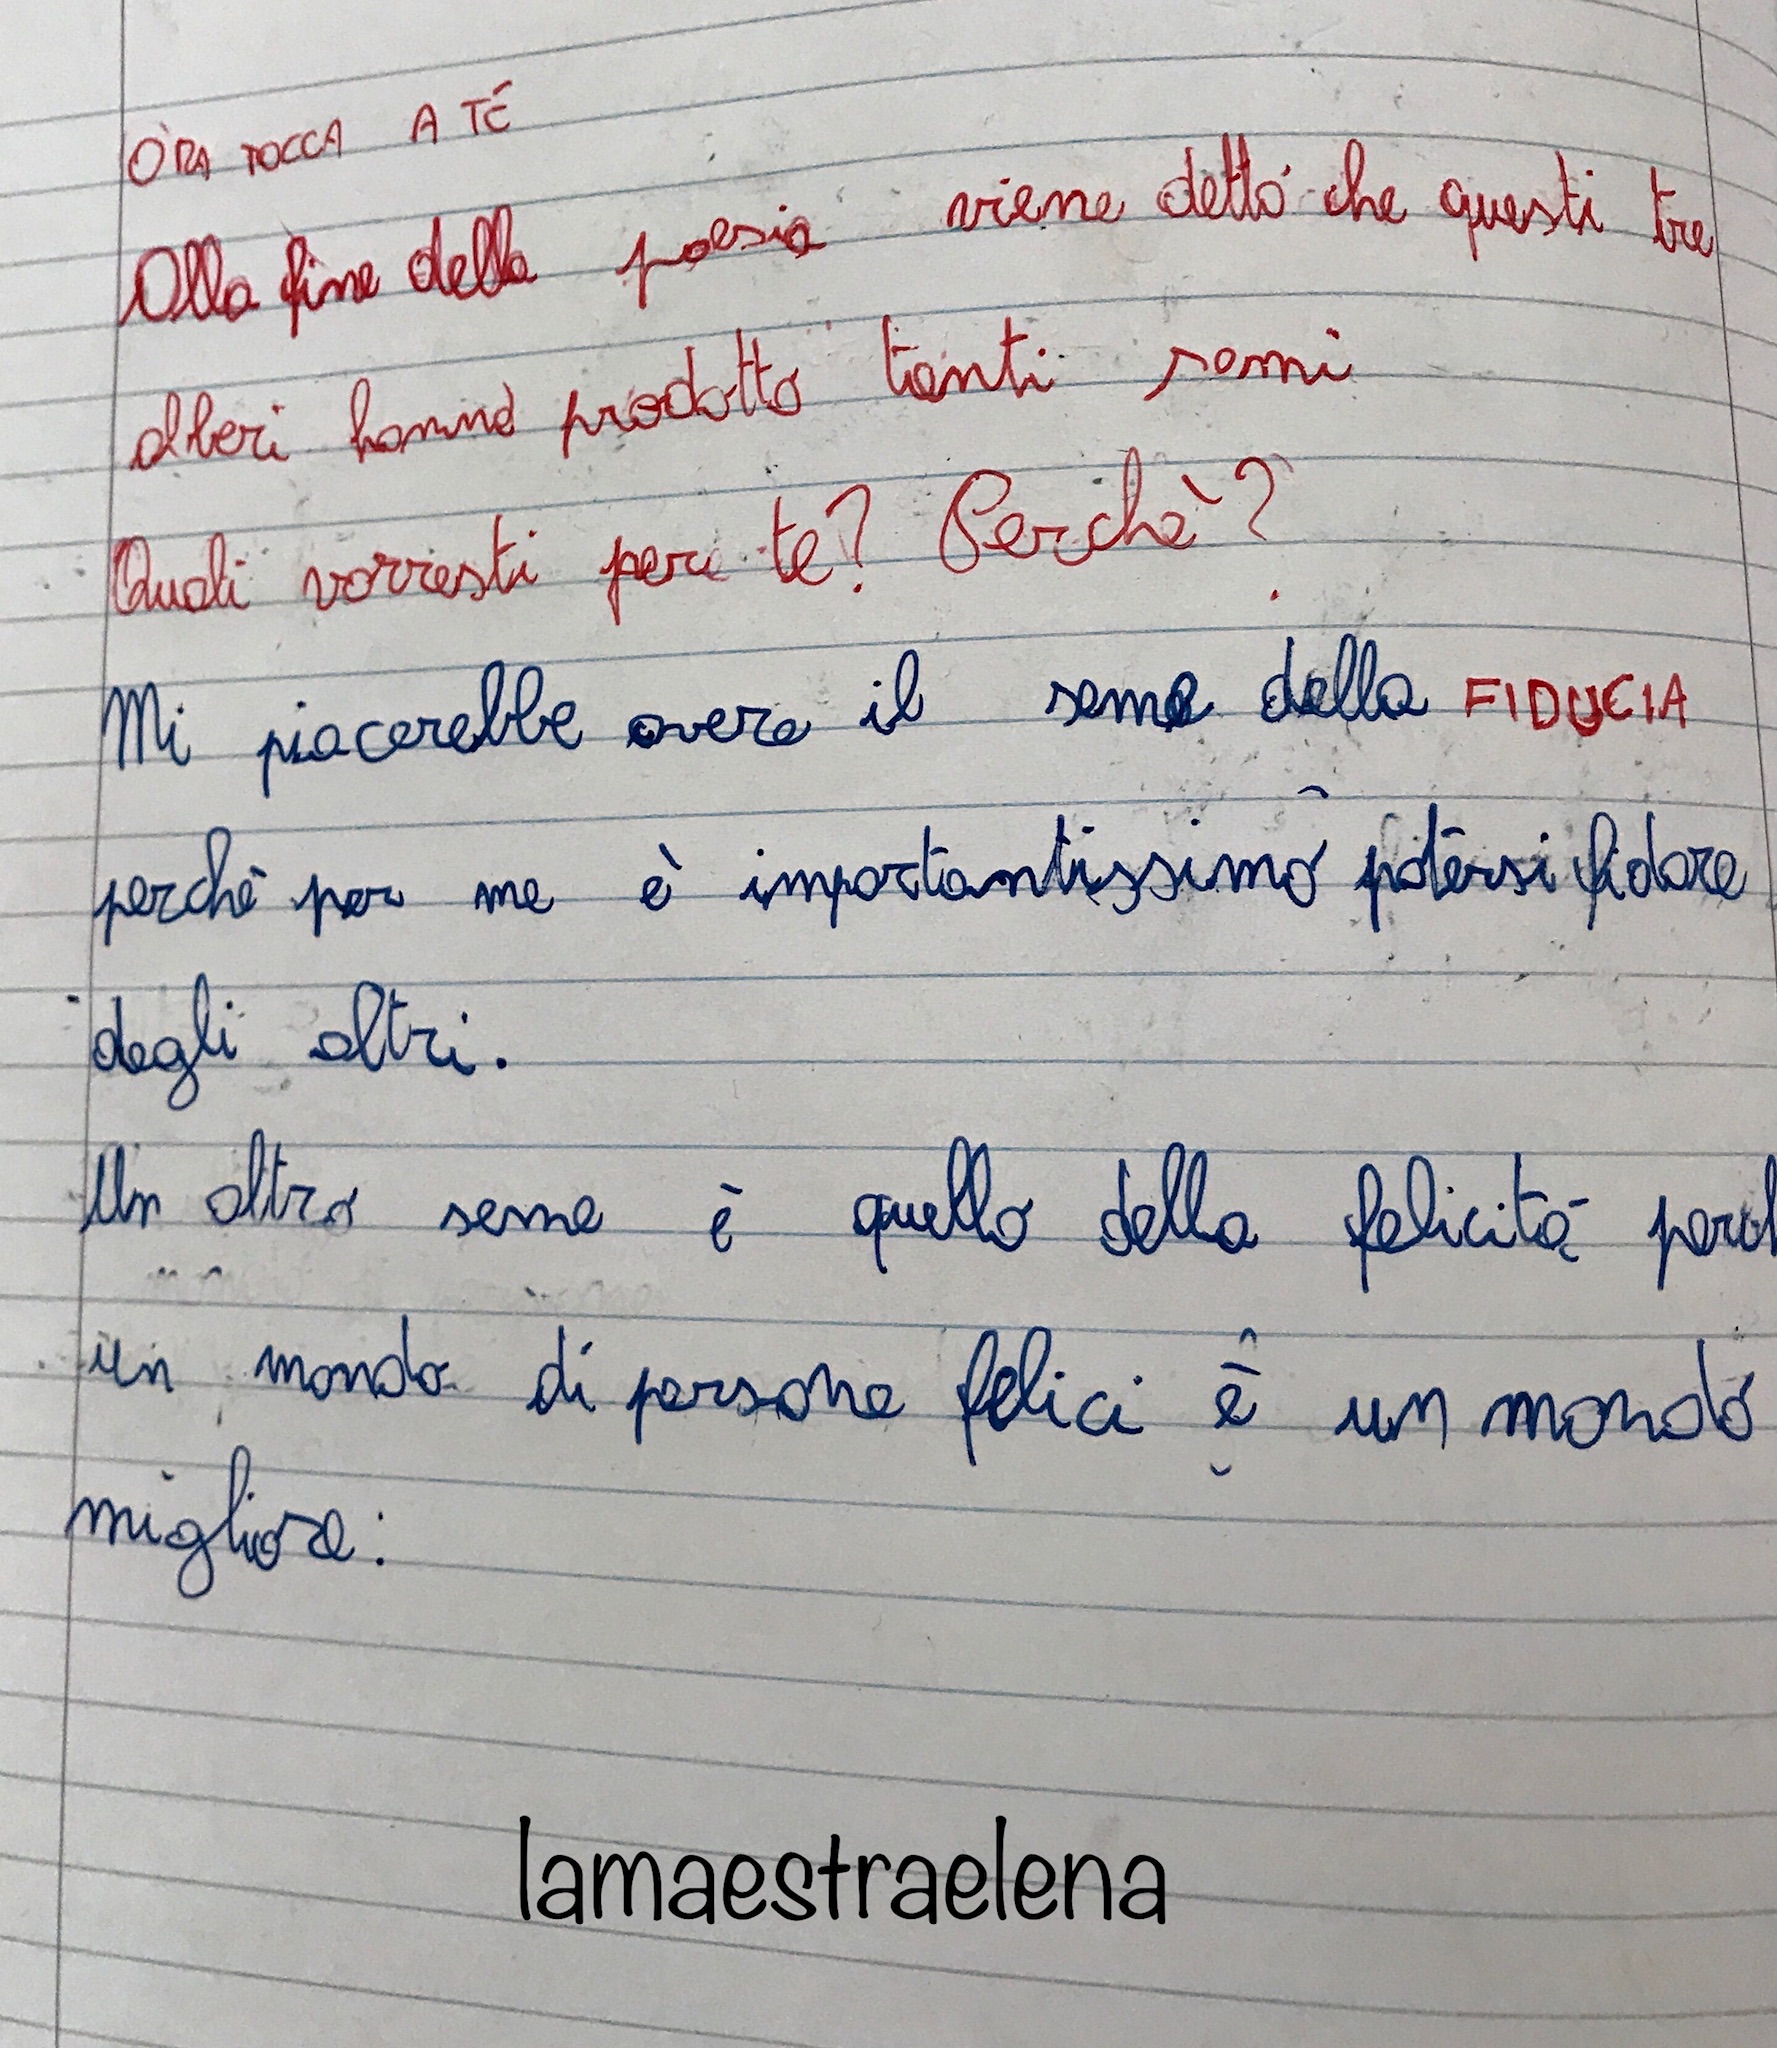 ORA TOCCA A TE
Alla fine della poesia viene detto che questi tre
alberi hanno prodotto tanti semi
Quali vorresti per te? Perchè?
Mi piacerebbe avere il seme della FIDUCIA
perchè per me è importantissimo potersi fidare
degli altri.
Un altro seme è quello della felicità perch
un mondo di persone felici è un mondo
migliore:
lamaestraelena